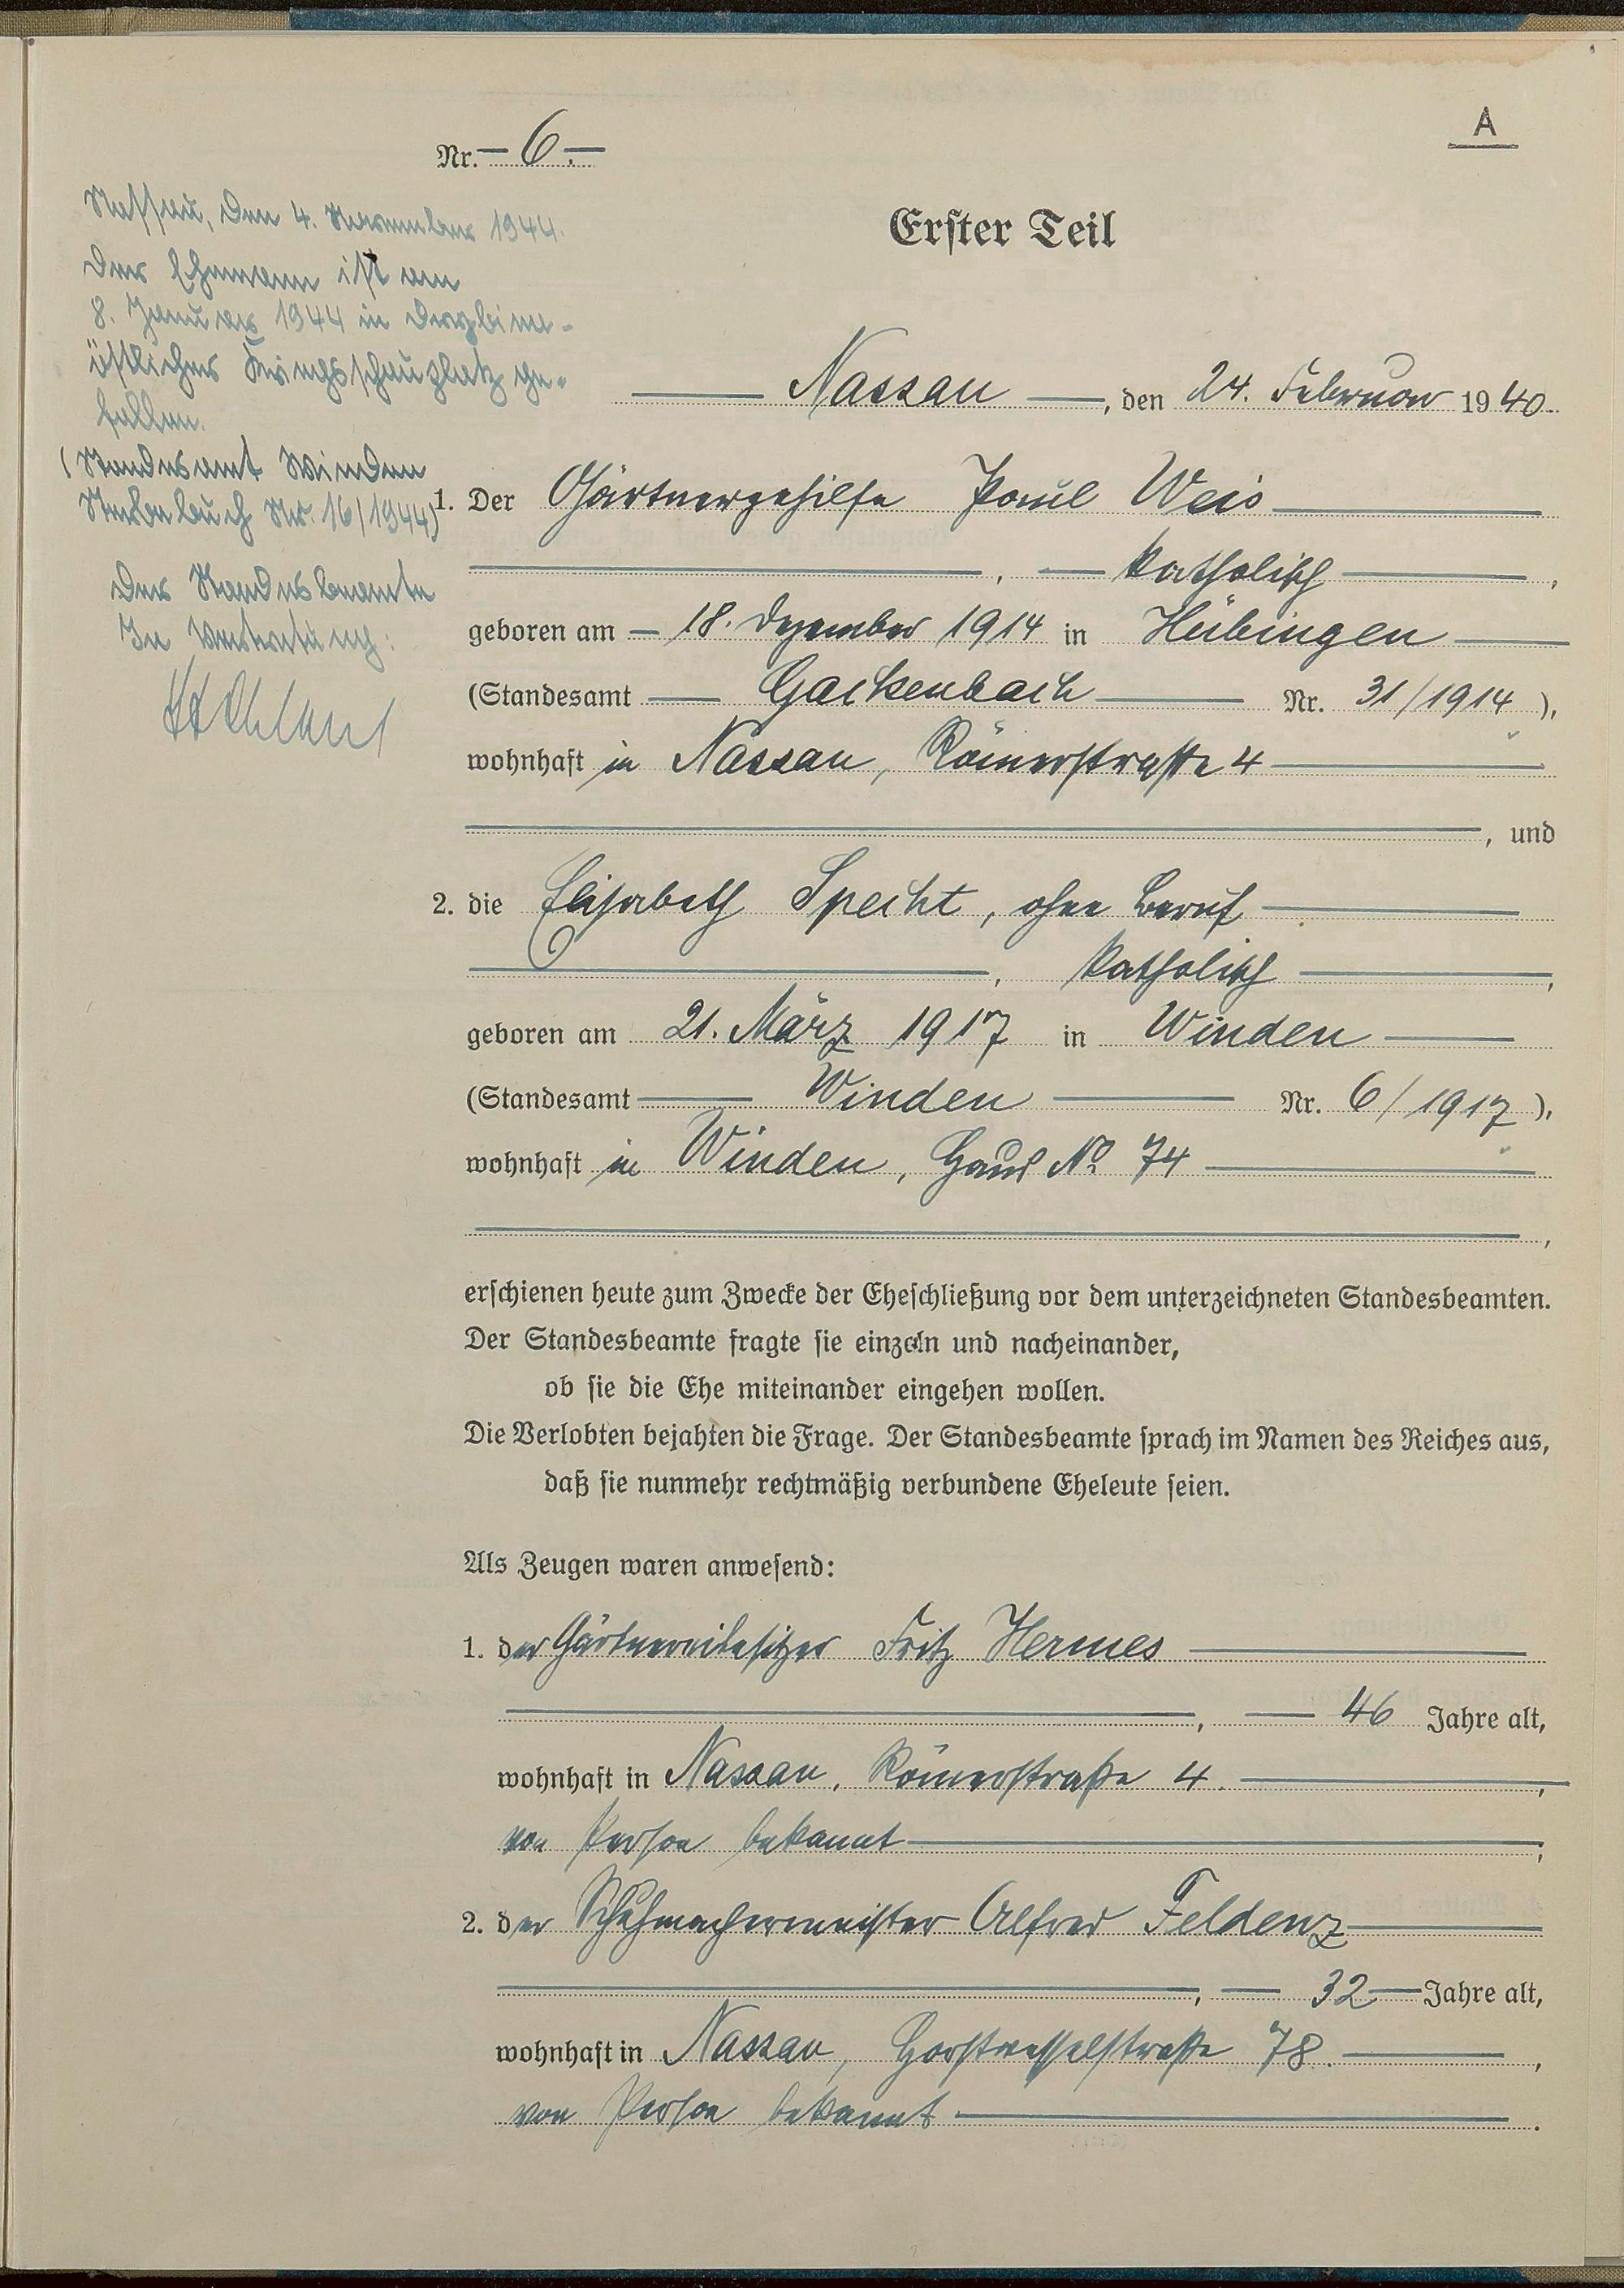 A
Nr. 6.
Nassau, den 4. November 1944.
Der Ehemann ist am
8. Januar 1944 in
östlicher Kriegsschauplatz ge-
fallen.
(Standesamt Winden
Sterbebuch Nr. 16/1944)
Der Standesbeamte
In Vertretung:
Erster Teil
Nassau, den 24. Februar 1940.
1. Der Gärtnergehilfe Paul Weis
, katholisch,
geboren am 18. Dezember 1914 in Hübingen
(Standesamt Gackenbach Nr. 31/1914),
wohnhaft in Nassau, Römerstraße 4
, und
2. die Elisabeth Specht, ohne Beruf
, katholisch,
geboren am 21. März 1917 in Winden
(Standesamt Winden Nr. 6/1917),
wohnhaft in Winden, Haus No 74
,
erschienen heute zum Zwecke der Eheschließung vor dem unterzeichneten Standesbeamten.
Der Standesbeamte fragte sie einzeln und nacheinander,
ob sie die Ehe miteinander eingehen wollen.
Die Verlobten bejahten die Frage. Der Standesbeamte sprach im Namen des Reiches aus,
daß sie nunmehr rechtmäßig verbundene Eheleute seien.
Als Zeugen waren anwesend:
1. der Gärtnereibesitzer Fritz Hermes
, 46 Jahre alt,
wohnhaft in Nassau, Römerstraße 4.,
von Person bekannt;
2. der Schuhmachermeister Alfred Feldenz
, 32 Jahre alt,
wohnhaft in Nassau, Horstwesselstraße 78.,
von Person bekannt.